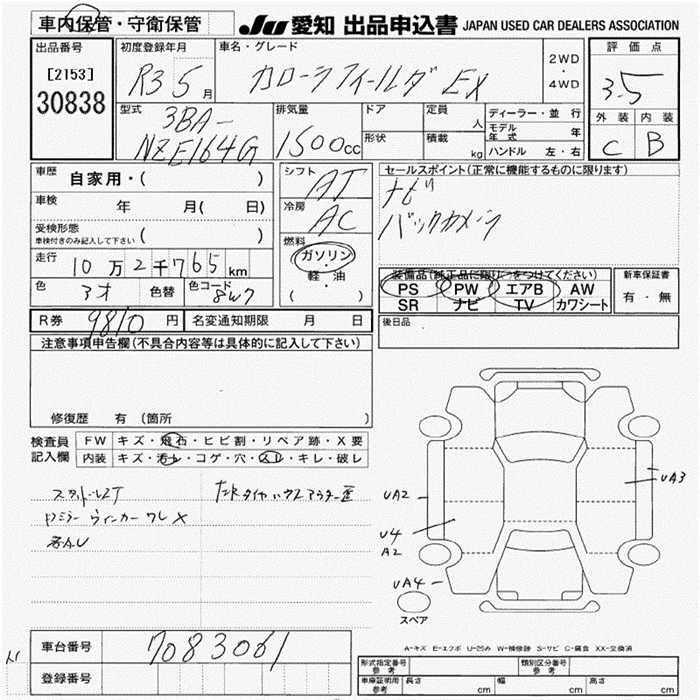 車内保管・守衛保管
JU 愛知 出品申込書 JAPAN USED CAR DEALERS ASSOCIATION
出品番号
[2153]
30838
初度登録年月
R3 5月
車名・グレード
カローラフィールダ EX
2WD
・
4WD
評価点
3.5
外装
C
内装
B
型式
3BA-
NZE164G
排気量
1500cc
ドア
形状
定員
人
積載
kg
ディーラー・並行
モデル年式
年
ハンドル 左・右
車歴 自家用・( )
車検 年 月( 日)
受検形態
車検付きのみ記入して下さい ( )
走行 10万2千765km
色 色替 色コード 8W7
シフト AT
冷房 AC
燃料
ガソリン
・
軽・油
( )
セールスポイント(正常に機能するものに限ります)
ナビ
バックカメラ
装備品(純正品に限り○をつけてください)
PS PW エアB AW
SR ナビ TV カワシート
新車保証書
有・無
後日品
R券 9810円 名変通知期限 月 日
注意事項申告欄(不具合内容等は具体的に記入して下さい)
修復歴 有(箇所 )
検査員記入欄
FW キズ・飛石・ヒビ割・リペア跡・X要
内装 キズ・汚レ・コゲ・穴・スレ・キレ・破レ
UA2
UA3
U4
A2
UA4
スペア
A-キズ E-エクボ U-凹み W-補修跡 S-サビ C-腐食 XX-交換済
車台番号 7083061
登録番号
形式指定番号
参考
類別区分番号
参考
車庫証明用
参考
長さ cm 幅 cm 高さ cm